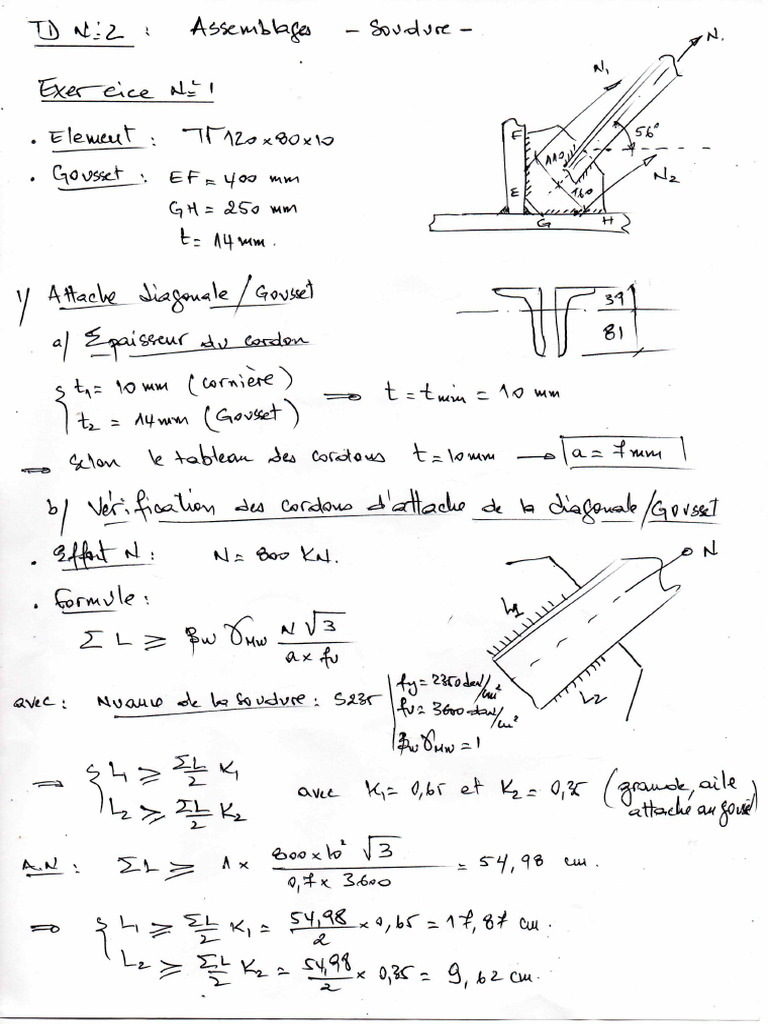 TD N°2 : Assemblages - Soudure -
Exercice N°1
. Element : ⅂Γ 120x80x10
. Gousset : EF = 400 mm
GH = 250 mm
t = 14 mm.
N.
N1
56°
F
110
N2
E
160
G
H
1/ Attache diagonale / Gousset
39
81
a/ Epaisseur du cordon
{ t1 = 10 mm (cornière)
t2 = 14 mm (Gousset)
⟹ t = tmin = 10 mm
⟹ selon le tableau des cordons t = 10mm → a = 7mm
b/ Vérification des cordons d'attache de la diagonale / Gousset
. Effort N : N = 800 KN.
N
. Formule :
L1
Σ L ≥ βw γMw N√3 / a x fu
L2
avec : Nuance de la soudure : S235
fy = 2350 daN/cm²
fu = 3600 daN/cm²
βw γMw = 1
⟹ { L1 ≥ ΣL/2 K1
L2 ≥ ΣL/2 K2
avec K1 = 0,65 et K2 = 0,35 (grande aile attaché au gousset)
A.N : ΣL ≥ 1 x 800 x 10² √3 / 0,7 x 3600 = 54,98 cm.
⟹ { L1 ≥ ΣL/2 K1 = 54,98/2 x 0,65 = 17,87 cm.
L2 ≥ ΣL/2 K2 = 54,98/2 x 0,35 = 9,62 cm.